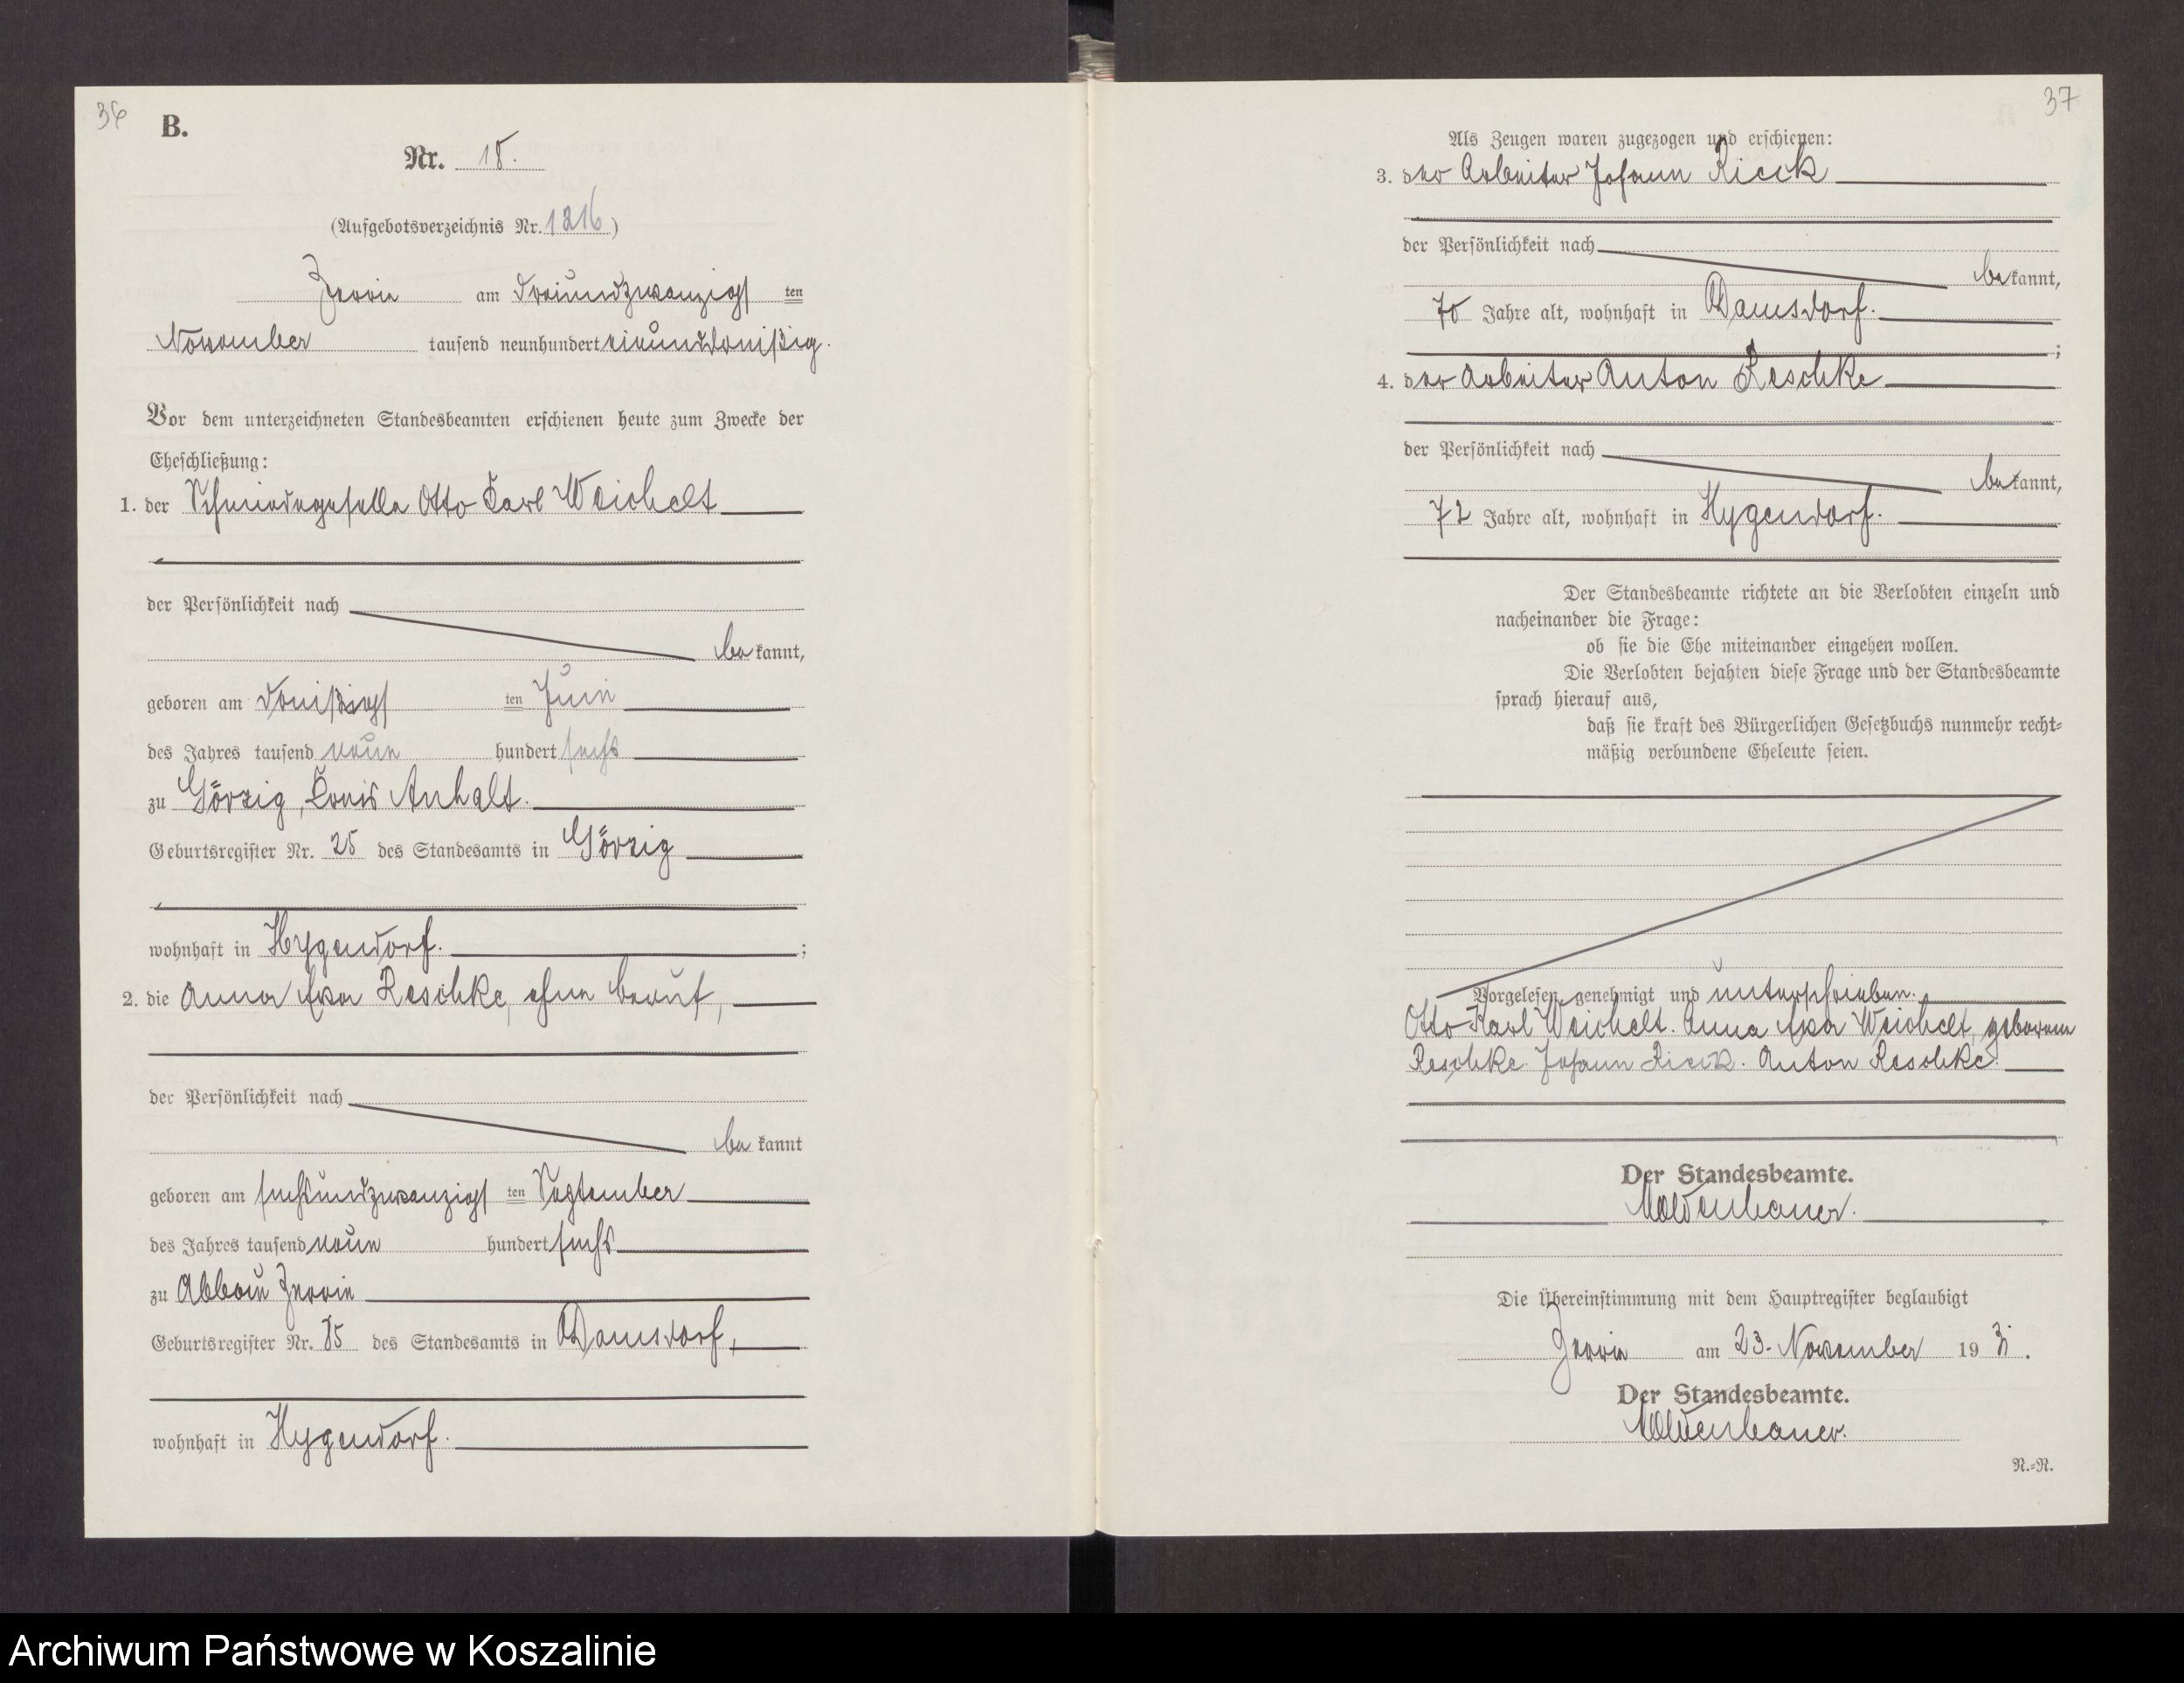 36
B.
Nr. 18.
(Aufgebotsverzeichnis Nr. 1216)
Zerrin am dreiundzwanzigsten
November tausend neunhundert einunddreißig.
Vor dem unterzeichneten Standesbeamten erschienen heute zum Zwecke der
Eheschließung:
1. der Schmiedegeselle Otto Karl Weichelt
der Persönlichkeit nach
bekannt,
geboren am dreißigsten Juni
des Jahres tausend neun hundert sechs
zu Görzig, Kreis Anhalt.
Geburtsregister Nr. 25 des Standesamts in Görzig
wohnhaft in Hygendorf.;
2. die Anna Eva Reschke, ohne Beruf,
der Persönlichkeit nach
bekannt
geboren am sechsundzwanzigsten September
des Jahres tausend neun hundert sechs
zu Abbau Zerrin
Geburtsregister Nr. 75 des Standesamts in Damsdorf,
wohnhaft in Hygendorf.
37
Als Zeugen waren zugezogen und erschienen:
3. der Arbeiter Johann Rieck
der Persönlichkeit nach
bekannt,
70 Jahre alt, wohnhaft in Damsdorf.
;
4. der Arbeiter Anton Reschke
der Persönlichkeit nach
bekannt,
72 Jahre alt, wohnhaft in Hygendorf.
Der Standesbeamte richtete an die Verlobten einzeln und
nacheinander die Frage:
ob sie die Ehe miteinander eingehen wollen.
Die Verlobten bejahten diese Frage und der Standesbeamte
sprach hierauf aus,
daß sie kraft des Bürgerlichen Gesetzbuchs nunmehr recht-
mäßig verbundene Eheleute seien.
Vorgelesen, genehmigt und unterschrieben.
Otto Karl Weichelt. Anna Eva Weichelt, geborene
Reschke. Johann Rieck. Anton Reschke.
Der Standesbeamte.
Moldenhauer.
Die Übereinstimmung mit dem Hauptregister beglaubigt
Zerrin am 23. November 1931.
Der Standesbeamte.
Moldenhauer.
N.-N.
Archiwum Państwowe w Koszalinie